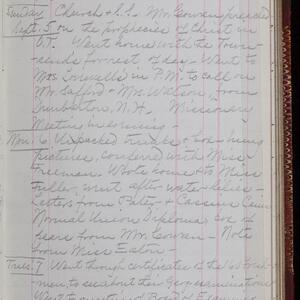 Sunday Church & S.S. Mr. Gowen preached
Sept. 5 on the prophecies of Christ in
O.T. Went home with the Town-
sends for rest of day - Went to
Mrs. in P.M. to call on
Mr. Safford - Mr. Watson, from
Dunbarton, N.H. Missionary
Meeting in evening -
Mon. 6 Unpacked trunks & box - hung
pictures, conferred with Miss
Freeman. Wrote home & to Miss
Fuller, went after water lilies -
Letters from Patey & Cassius
Normal Union Diploma, box of
pears from Mr. Gowen - Note
from Miss Eaton -
Tues. 7 Went though certificates of the
men, to see about their Geog. examinations
Went to meeting of Board of Exam